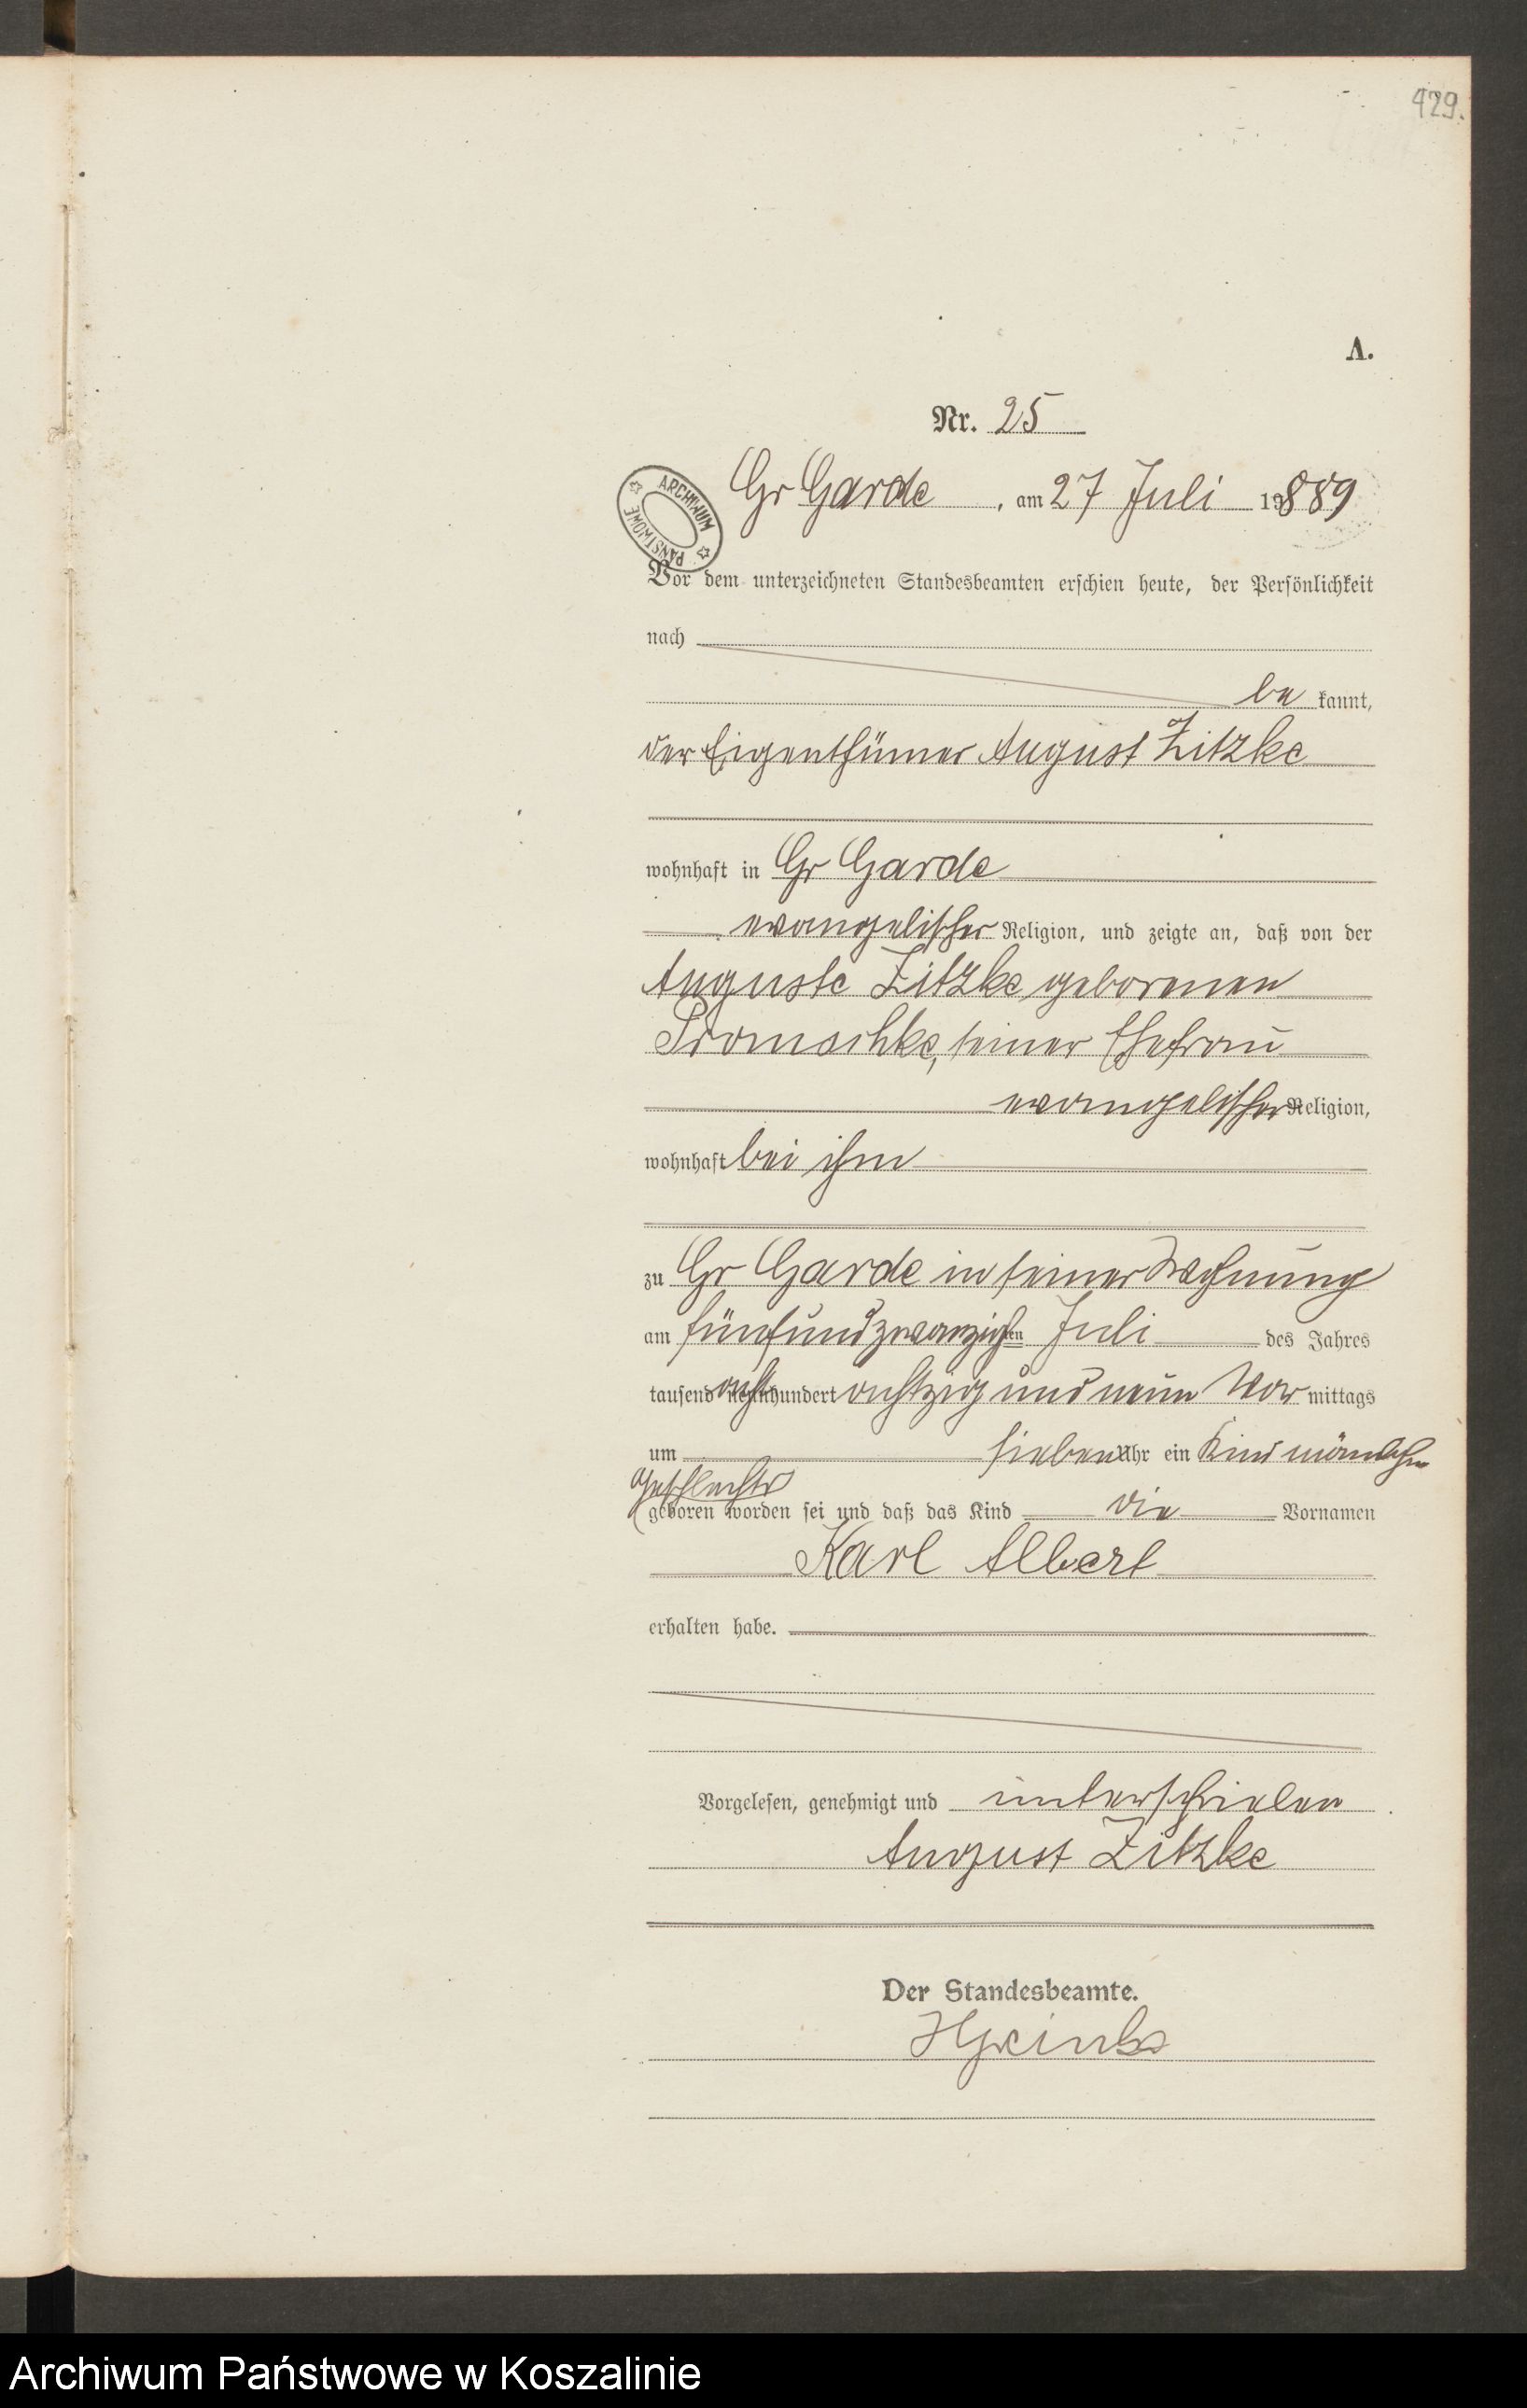 429.
A.
Nr. 25
ARCHIWUM PAŃSTWOWE
Gr Garde, am 27 Juli 1889
Vor dem unterzeichneten Standesbeamten erschien heute, der Persönlichkeit
nach
be kannt,
der Eigenthümer August Zitzke
wohnhaft in Gr Garde
evangelischer Religion, und zeigte an, daß von der
Auguste Zitzke geborenen
seiner Ehefrau
evangelischer Religion,
wohnhaft bei ihm
zu Gr Garde in seiner Wohnung
am fünfundzwanzigsten Juli des Jahres
tausend acht hundert achtzig und neun Vor mittags
um sieben Uhr ein Kind männlichen
Geschlechts
geboren worden sei und daß das Kind die Vornamen
Karl Albert
erhalten habe.
Vorgelesen, genehmigt und unterschrieben
August Zitzke
Der Standesbeamte.
Archiwum Państwowe w Koszalinie